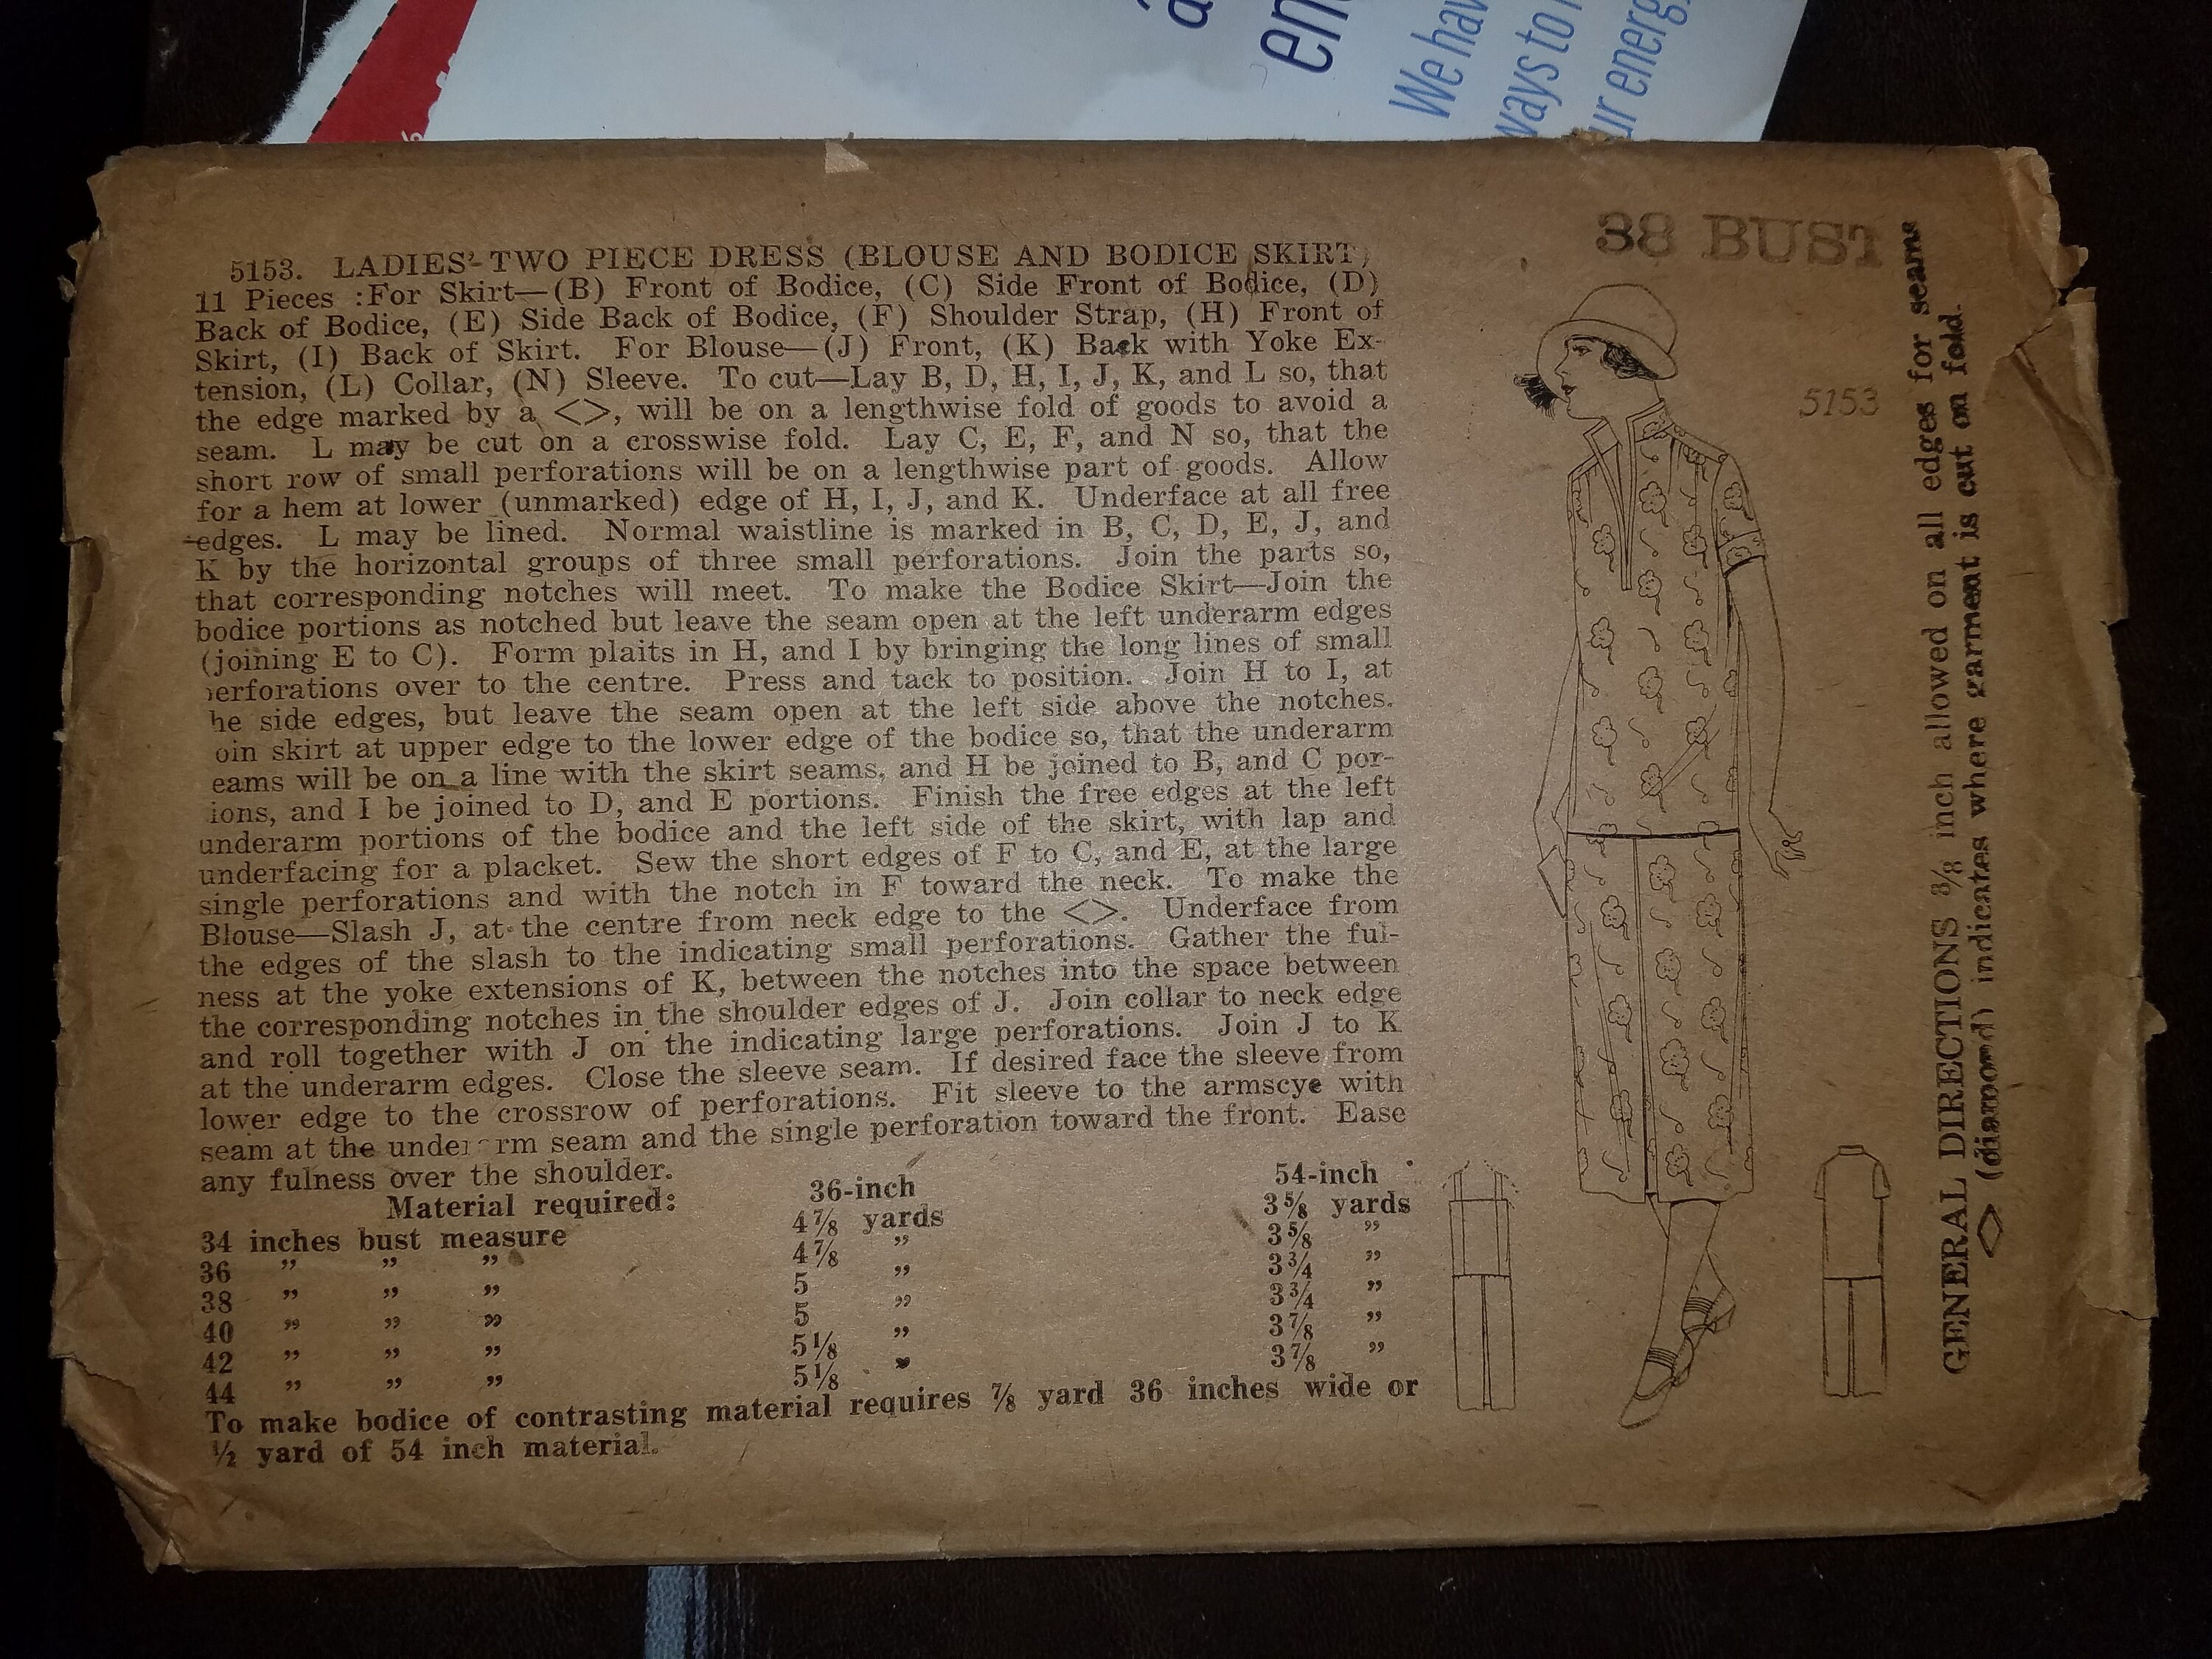 en
We hav
ways to
ur energ
5153. LADIES' TWO PIECE DRESS (BLOUSE AND BODICE SKIRT)
11 Pieces :For Skirt—(B) Front of Bodice, (C) Side Front of Bodice, (D)
Back of Bodice, (E) Side Back of Bodice, (F) Shoulder Strap, (H) Front of
Skirt, (I) Back of Skirt. For Blouse—(J) Front, (K) Back with Yoke Ex-
tension, (L) Collar, (N) Sleeve. To cut—Lay B, D, H, I, J, K, and L so, that
the edge marked by a <>, will be on a lengthwise fold of goods to avoid a
seam. L may be cut on a crosswise fold. Lay C, E, F, and N so, that the
short row of small perforations will be on a lengthwise part of goods. Allow
for a hem at lower (unmarked) edge of H, I, J, and K. Underface at all free
edges. L may be lined. Normal waistline is marked in B, C, D, E, J, and
K by the horizontal groups of three small perforations. Join the parts so,
that corresponding notches will meet. To make the Bodice Skirt—Join the
bodice portions as notched but leave the seam open at the left underarm edges
(joining E to C). Form plaits in H, and I by bringing the long lines of small
erforations over to the centre. Press and tack to position. Join H to I, at
he side edges, but leave the seam open at the left side above the notches.
oin skirt at upper edge to the lower edge of the bodice so, that the underarm
eams will be on a line with the skirt seams, and H be joined to B, and C por-
ions, and I be joined to D, and E portions. Finish the free edges at the left
underarm portions of the bodice and the left side of the skirt, with lap and
underfacing for a placket. Sew the short edges of F to C, and E, at the large
single perforations and with the notch in F toward the neck. To make the
Blouse—Slash J, at the centre from neck edge to the <>. Underface from
the edges of the slash to the indicating small perforations. Gather the ful-
ness at the yoke extensions of K, between the notches into the space between
the corresponding notches in the shoulder edges of J. Join collar to neck edge
and roll together with J on the indicating large perforations. Join J to K
at the underarm edges. Close the sleeve seam. If desired face the sleeve from
lower edge to the crossrow of perforations. Fit sleeve to the armscye with
seam at the under rm seam and the single perforation toward the front. Ease
any fulness over the shoulder.
Material required: 36-inch 54-inch
34 inches bust measure 4⅞ yards 3⅝ yards
36 " " " 4⅞ " 3⅝ "
38 " " " 5 " 3¾ "
40 " " " 5 " 3¾ "
42 " " " 5⅛ " 3⅞ "
44 " " " 5⅛ " 3⅞ "
To make bodice of contrasting material requires ⅞ yard 36 inches wide or
½ yard of 54 inch material.
38 BUST
5153
GENERAL DIRECTIONS ⅜ inch allowed on all edges for seams
<> (diamond) indicates where garment is cut on fold.